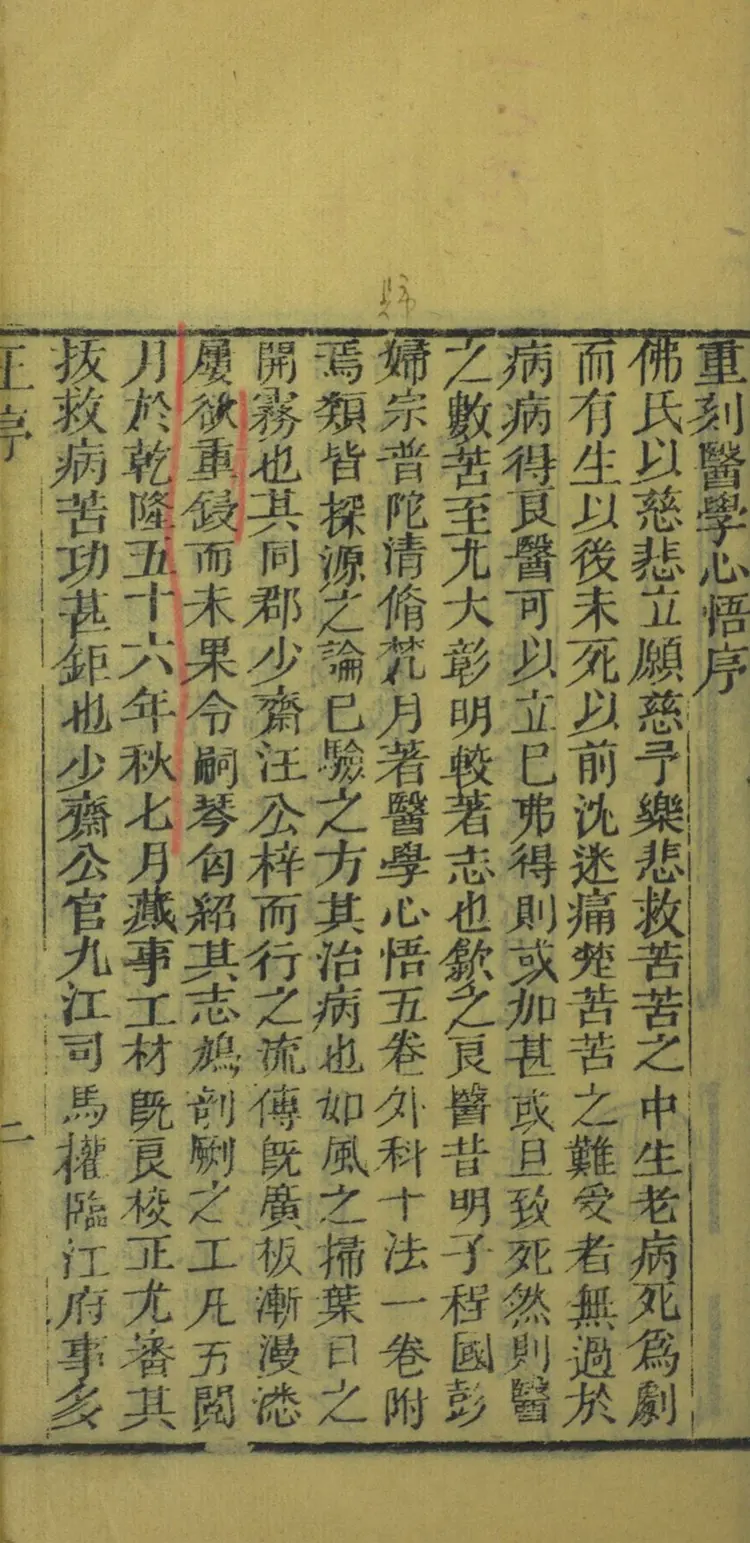 重刻醫學心悟序
佛氏以慈悲立願慈予樂悲救苦苦之中生老病死爲劇
而有生以後未死以前沈迷痛楚苦苦之難受者無過於
病病得良醫可以立已弗得則或加甚或且致死然則醫
之數苦至尤大彰明較著志也歙之良醫昔明子程國彭
婦宗普陀清脩梵月著醫學心悟五卷外科十法一卷附
焉類皆探源之論已驗之方其治病也如風之掃葉日之
開霧也其同郡少齋汪公梓而行之流傳既廣板漸漫漶
屢欲重鋟而未果令嗣琴匈紹其志鳩剞劂之工凡五閱
月於乾隆五十六年秋七月蕆事工材既良校正尤審其
拔救病苦功甚鉅也少齋公官九江司馬權臨江府事多
汪序
二
歸